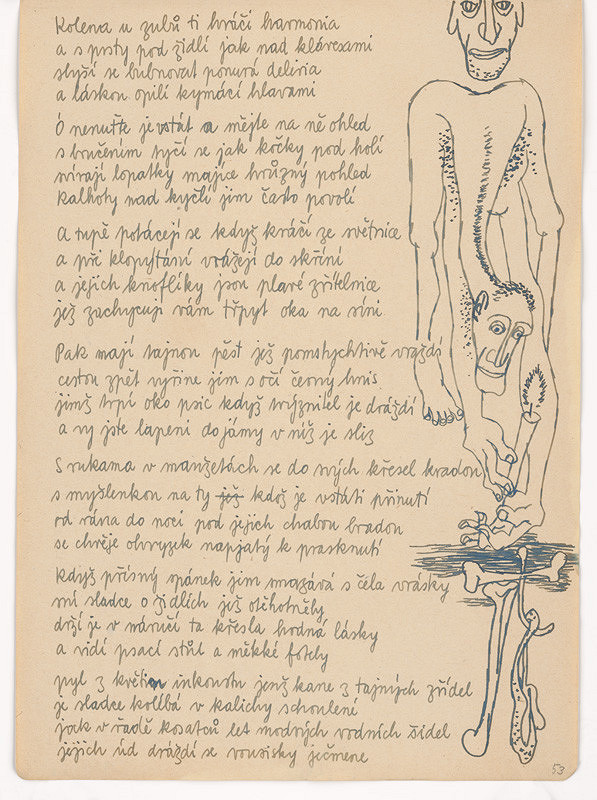 Kolena u zubů ti hráčí harmonia
a s prsty pod židlí jak nad klávesami
slyší se bubnovat ponurá deliria
a láskou opilí kymácí hlavami
Ó nenuťte je vstát a mějte na ně ohled
s bručením tyčí se jak kočky pod holí
svírají lopatky majíce hrůzný pohled
kalhoty nad kyčlí jim často povolí
A tupě potácejí se když kráčí ze světnice
a při klopýtání vrážejí do skříní
a jejich knoflíky jsou plavé zřítelnice
jež zachycují vám třpyt oka na síni
Pak mají tajnou pěst jež pomstychtivě vraždí
cestou zpět vyřine jim s očí černý hnis
jímž trpí oko psic když trýznitel je dráždí
a vy jste lapeni do jámy v níž je sliz
S rukama v manžetách se do svých křesel kradou
s myšlenkou na ty jež kdož je vstáti přinutí
od rána do noci pod jejich chabou bradou
se chvěje ohryzek napjatý k prasknutí
Když přísný spánek jim smazává s čela vrásky
sní sladce o židlích již otěhotněly
drží je v náručí ta křesla hodná lásky
a vidí psací stůl a měkké fotely
pyl z květin inkoustu jenž kane z tajných zřídel
je sladce kolíbá v kalichy schoulené
jak v řadě kosatců let modrých vodních šidel
jejich úd dráždí se vousisky ječmene
53